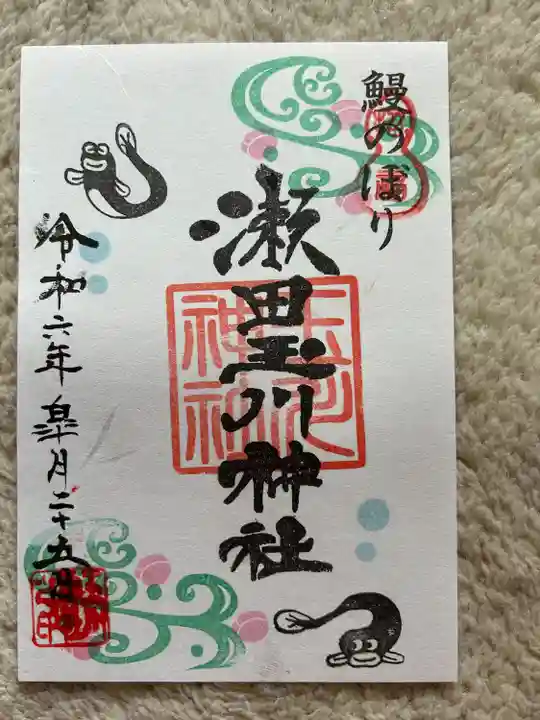 鰻のぼり
瀬田玉川神社
令和六年皐月二十五日